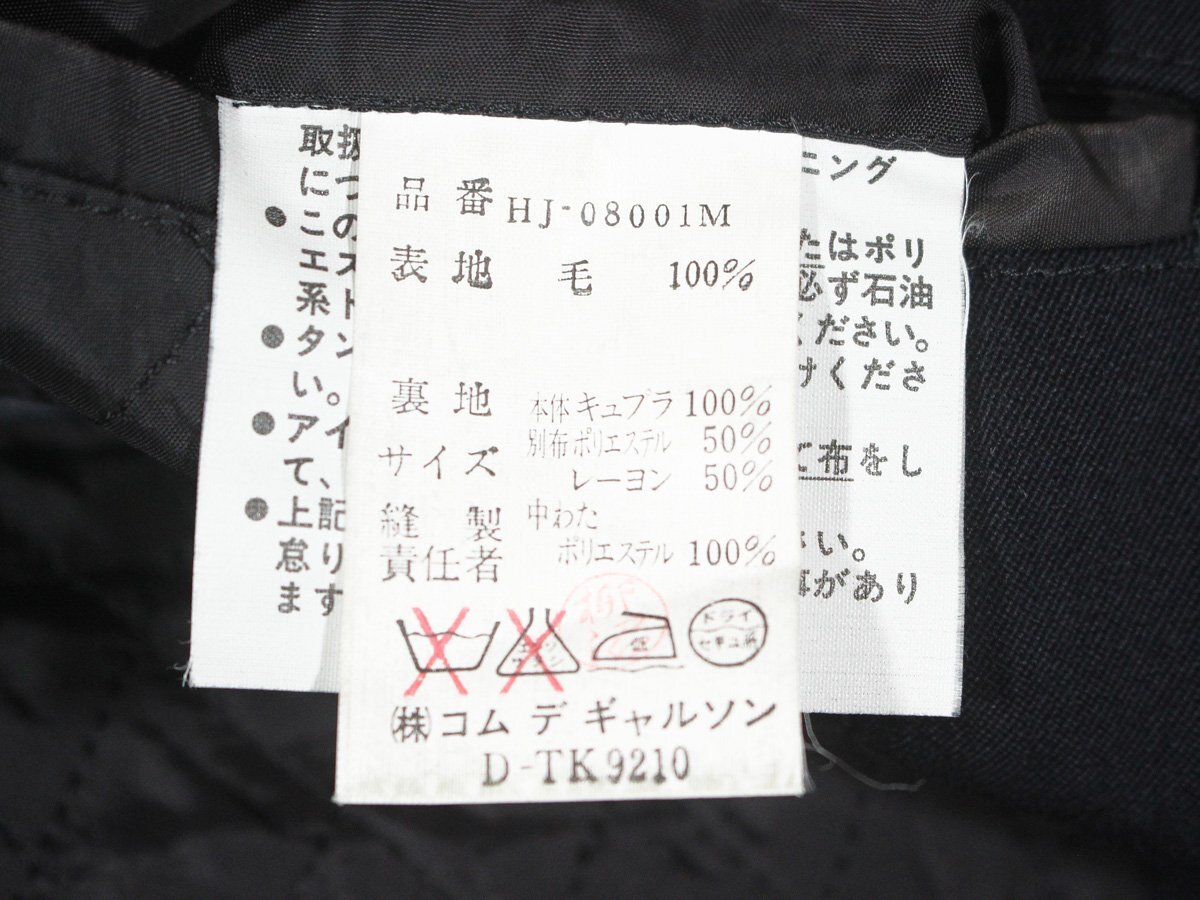 品番 HJ-08001M
表地 毛 100%
裏地 本体 キュプラ 100%
別布 ポリエステル 50%
サイズ
レーヨン 50%
縫製 中わた
責任者 ポリエステル 100%
ドライ
セキユ系
低
㈱コム デ ギャルソン
D-TK9210
取扱
につ
●この
エス
系ト
●タン
い。
●アイ
て、
●上記
怠り
ます
ニング
たはポリ
必ず石油
ください。
けくださ
て布をし
さい。
事があり